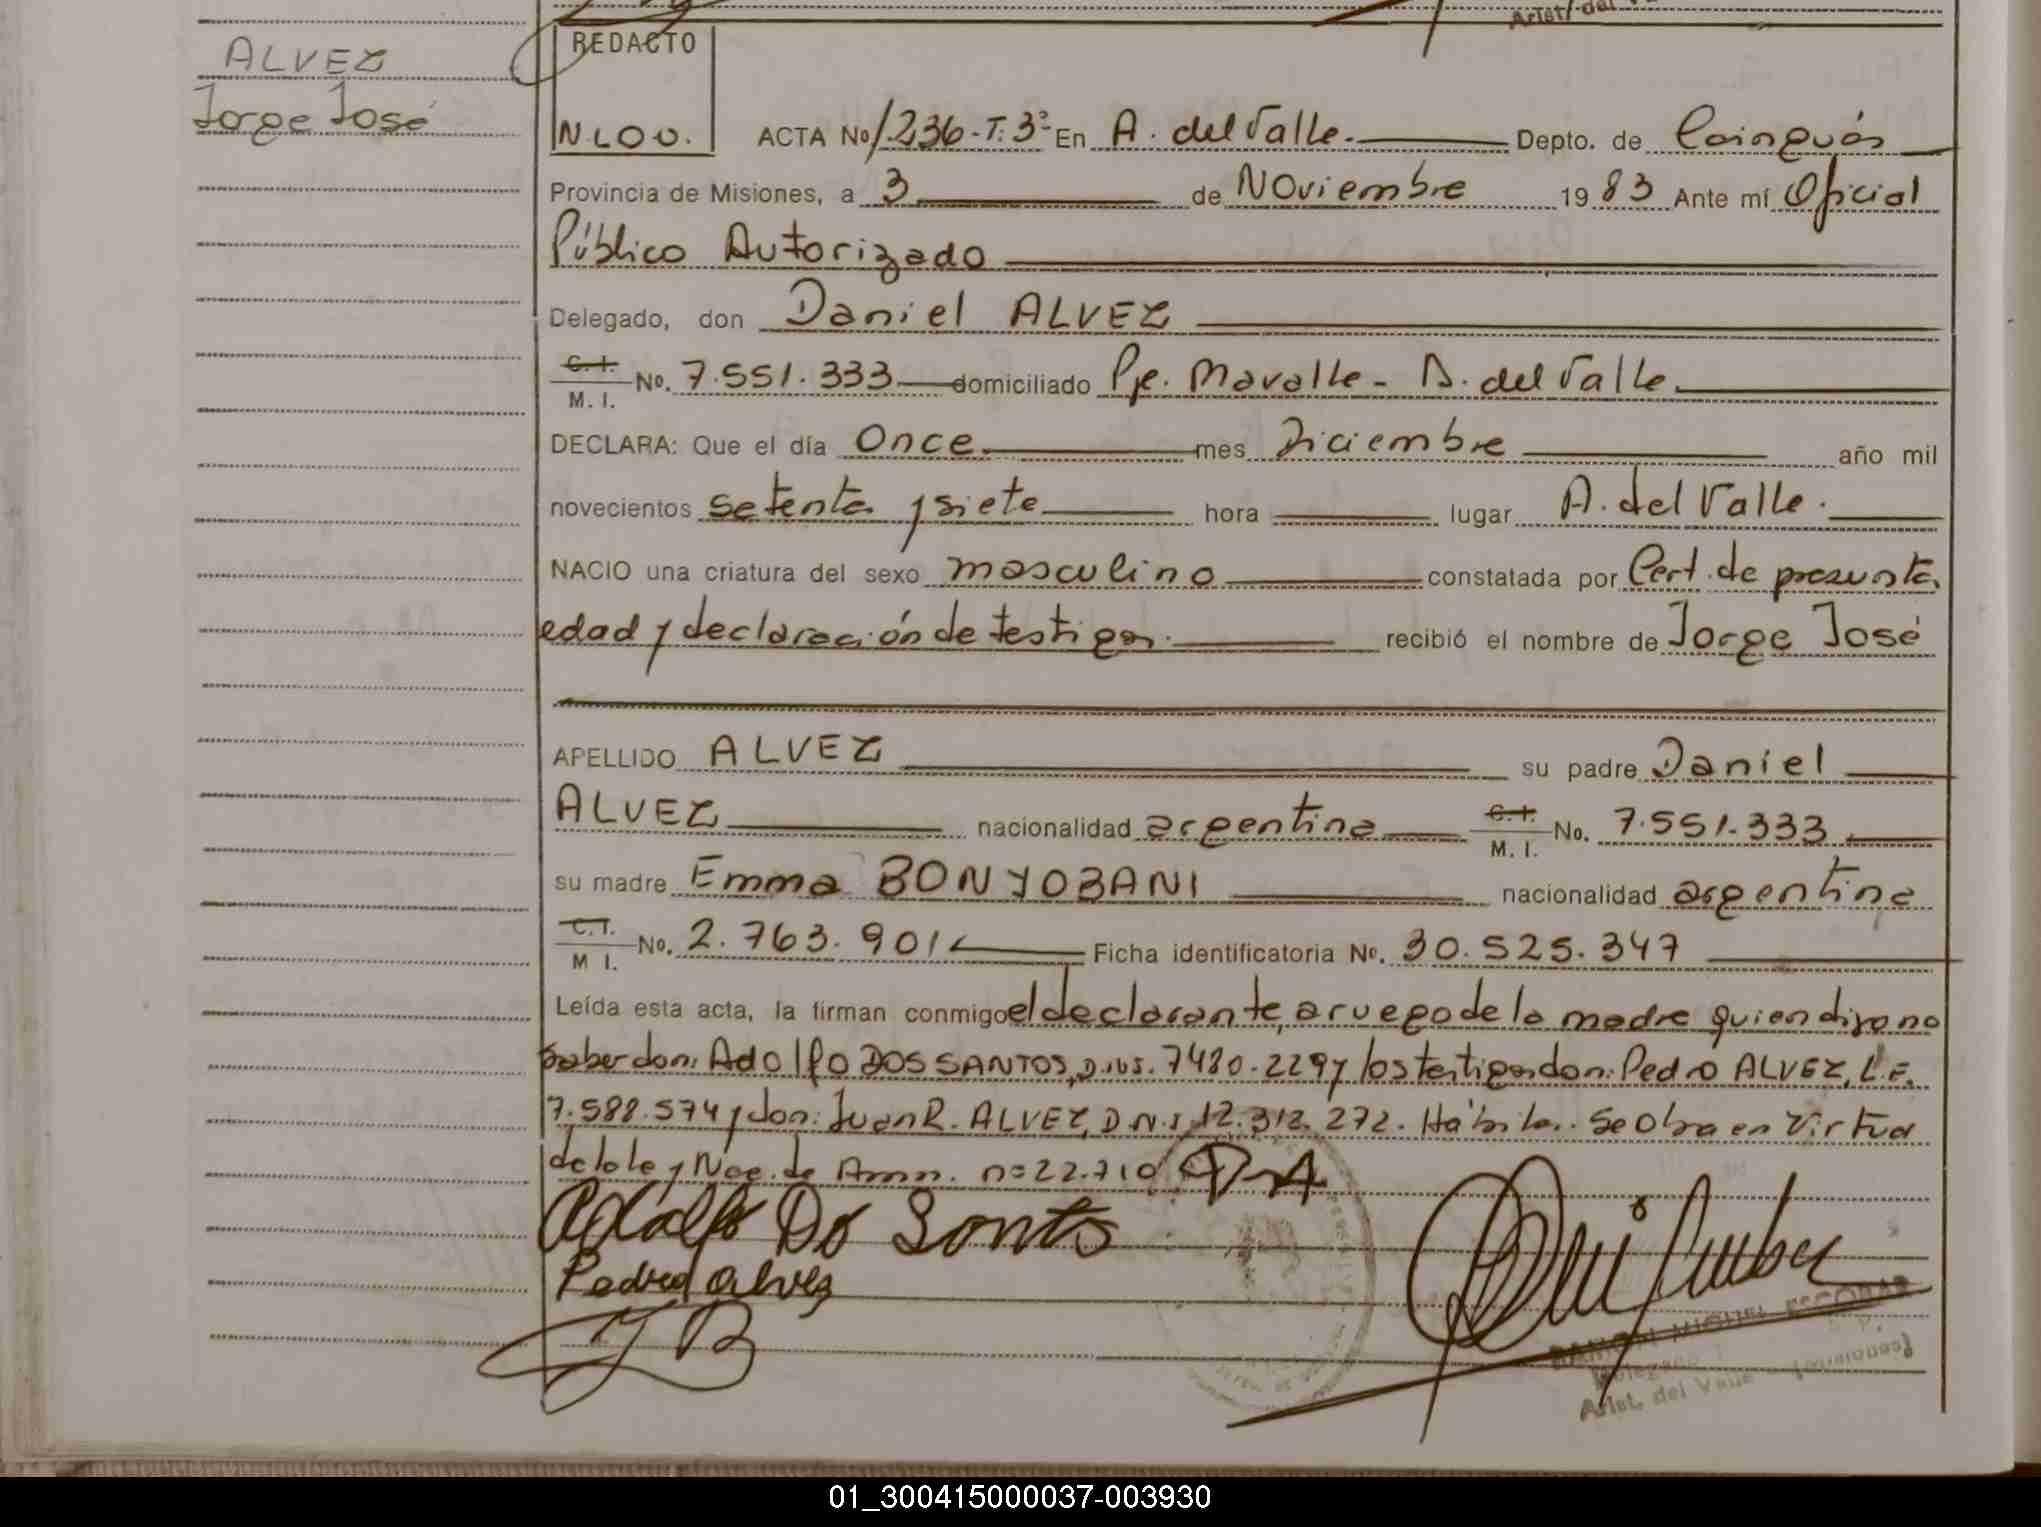 Arist. del
ALVEZ
Jorge José
REDACTO
N.LOU.
ACTA No 1236-T.3º En A. del Valle. Depto. de Cainguás
Provincia de Misiones, a 3 de Noviembre 1983 Ante mí Oficial
Público Autorizado
Delegado, don Daniel ALVEZ
C.I.
M. I. No. 7.551.333 domiciliado Pje. Mavalle - A. del Valle.
DECLARA: Que el día Once mes Diciembre año mil
novecientos setenta y siete hora lugar A. del Valle.
NACIO una criatura del sexo masculino constatada por Cert. de presunta
edad y declaración de testigos. recibió el nombre de Jorge José
APELLIDO ALVEZ su padre Daniel
ALVEZ nacionalidad argentina C.I. M. I. No. 7.551.333
su madre Emma BONYOBANI nacionalidad argentina
C.I. M I. No. 2.763.901 Ficha identificatoria No. 30.525.347
Leída esta acta, la firman conmigo el declarante, a ruego de la madre quien dijo no
saber don: Adolfo DOS SANTOS, D.N.I. 7480.229 y los testigos don: Pedro ALVEZ, L.E.
7.588.574 y don: Juan R. ALVEZ, D.N.I. 12.312.272. Hábiles. Se Obra en Virtud
de la ley Nac. de Amn. nº 22.710
Adolfo Do Santos
Pedro alves
RAMON MIGUEL ESCOBAR
Delegado
Arist. del Valle (Misiones)
01_300415000037-003930